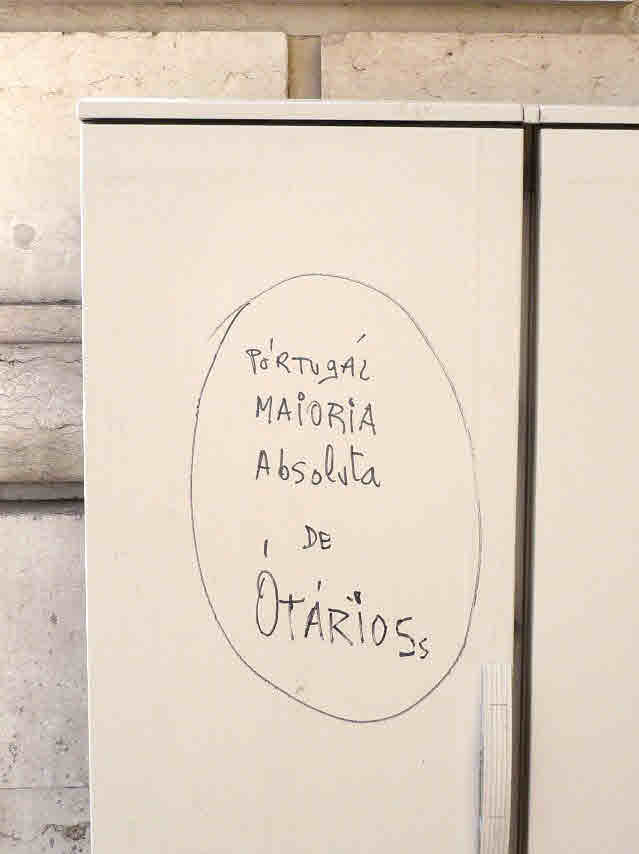 PÓRTUgÁL
MAiORiA
Absoluta
DE
ÓTÁRiOSs